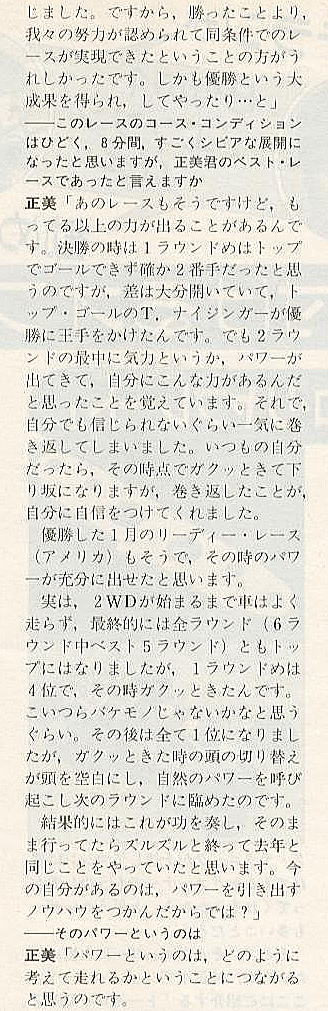 じました。ですから，勝ったことより，
我々の努力が認められて同条件でのレ
ースが実現できたということの方がう
れしかったです。しかも優勝という大
成果を得られ，してやったり…と」
――このレースのコース・コンディション
はひどく，8分間，すごくシビアな展開に
なったと思いますが，正美君のベスト・レ
ースであったと言えますか
正美「あのレースもそうですけど，も
ってる以上の力が出ることがあるんで
す。決勝の時は1ラウンドめはトップ
でゴールできず確か2番手だったと思
うのですが，差は大分開いていて，ト
ップ・ゴールのT，ナイジンガーが優
勝に王手をかけたんです。でも2ラウ
ンドの最中に気力というか，パワーが
出てきて，自分にこんな力があるんだ
と思ったことを覚えています。それで，
自分でも信じられないぐらい一気に巻
き返してしまいました。いつもの自分
だったら，その時点でガクッときて下
り坂になりますが，巻き返したことが，
自分に自信をつけてくれました。
優勝した1月のリーディー・レース
（アメリカ）もそうで，その時のパワ
ーが充分に出せたと思います。
実は，2WDが始まるまで車はよく
走らず，最終的には全ラウンド（6ラ
ウンド中ベスト5ラウンド）ともトッ
プにはなりましたが，1ラウンドめは
4位で，その時ガクッときたんです。
こいつらバケモノじゃないかなと思う
ぐらい。その後は全て1位になりまし
たが，ガクッときた時の頭の切り替え
が頭を空白にし，自然のパワーを呼び
起こし次のラウンドに臨めたのです。
結果的にはこれが功を奏し，そのま
ま行ってたらズルズルと終って去年と
同じことをやっていたと思います。今
の自分があるのは，パワーを引き出す
ノウハウをつかんだからでは？」
――そのパワーというのは
正美「パワーというのは，どのように
考えて走れるかということにつながる
と思うのです。